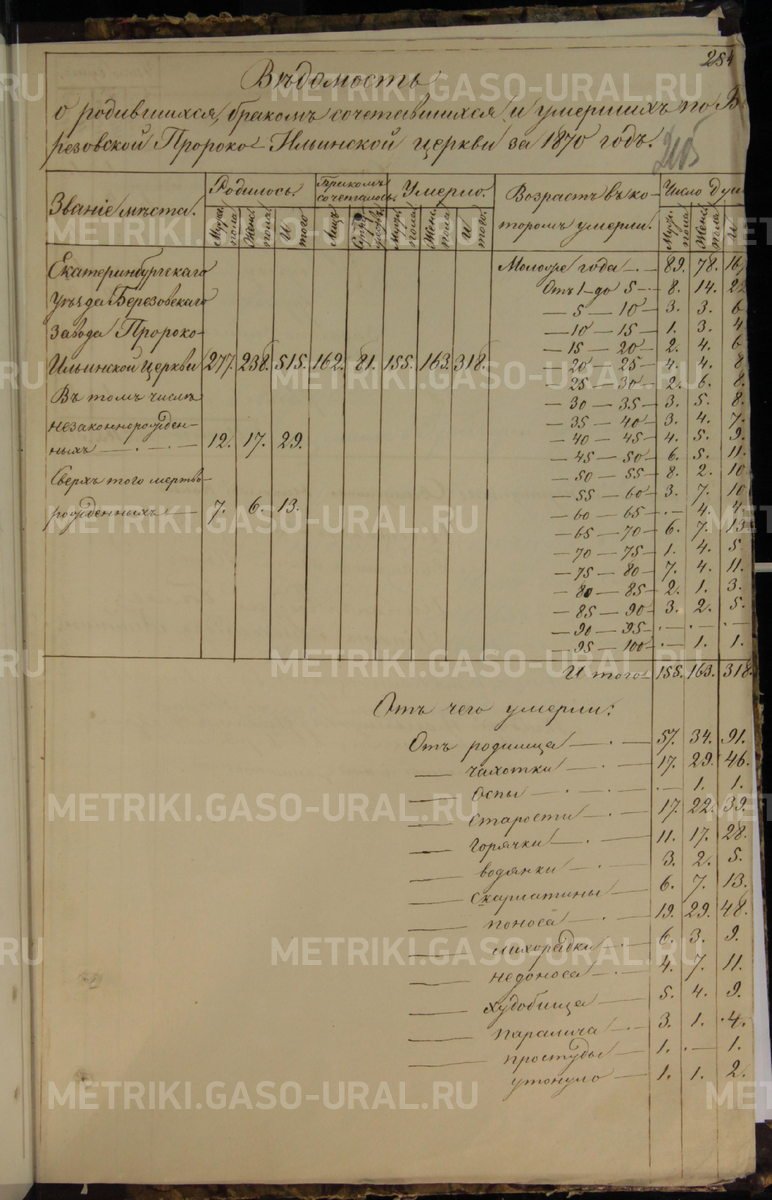 254
Вѣдомость
о родившихся, бракомъ сочетавшихся и умершихъ по Бе
резовской Пророко-Ильинской церкви за 1870 годъ.
205
Званіе мѣста. Родилось. Бракомъ сочеталось. Умерло. Возрастъ въ ко- Число душ
Муж. пола. Жен. пола. И того. Лицъ Муж. пола. Жен. пола. И того. торомъ умерли. Муж. пола. Жен. пола. И
Екатеринбургскаго Моложе года — 89. 78. 167
уѣзда Березовскаго Отъ 1 до 5 — 8. 14. 22
— 5 — 10 — 3. 3. 6
завода Пророко- — 10 — 15 — 1. 3. 4
— 15 — 20 — 2. 4. 6
Ильинской церкви 277. 238. 515. 162. 81. 155. 163. 318. — 20 — 25 — 4. 4. 8
— 25 — 30 — 2. 6. 8.
Въ томъ числѣ — 30 — 35 — 3. 5. 8.
незаконнорожден- — 35 — 40 — 3. 4. 7.
ныхъ — 12. 17. 29. — 40 — 45 — 4. 5. 9.
— 45 — 50 — 6. 5. 11.
Сверхъ того мертво — 50 — 55 — 8. 2. 10
— 55 — 60 — 3. 7. 10
рожденныхъ — 7. 6. 13. — 60 — 65 — . — 4. 4
— 65 — 70 — 6. 7. 13
— 70 — 75 — 1. 4. 5.
— 75 — 80 — 7. 4. 11.
— 80 — 85 — 2. 1. 3.
— 85 — 90 — 3. 2. 5.
— 90 — 95 — . — . — . —
— 95 — 100 — . — 1. 1.
И того 155. 163. 318.
Отъ чего умерли:
Отъ родимца — 57. 34. 91.
— чахотки — 17. 29. 46.
— Оспы — . — 1. 1.
— Старости — 17. 22. 39.
— горячки — 11. 17. 28.
— водянки — 3. 2. 5.
— скарлатины — 6. 7. 13.
— поноса — 19. 29. 48.
— лихорадки — 6. 3. 9.
— недоноса — 4. 7. 11.
— худобища — 5. 4. 9.
— паралича — 3. 1. 4.
— простуды — 1. — 1.
— утонуло — 1. 1. 2.
METRIKI.GASO-URAL.RU